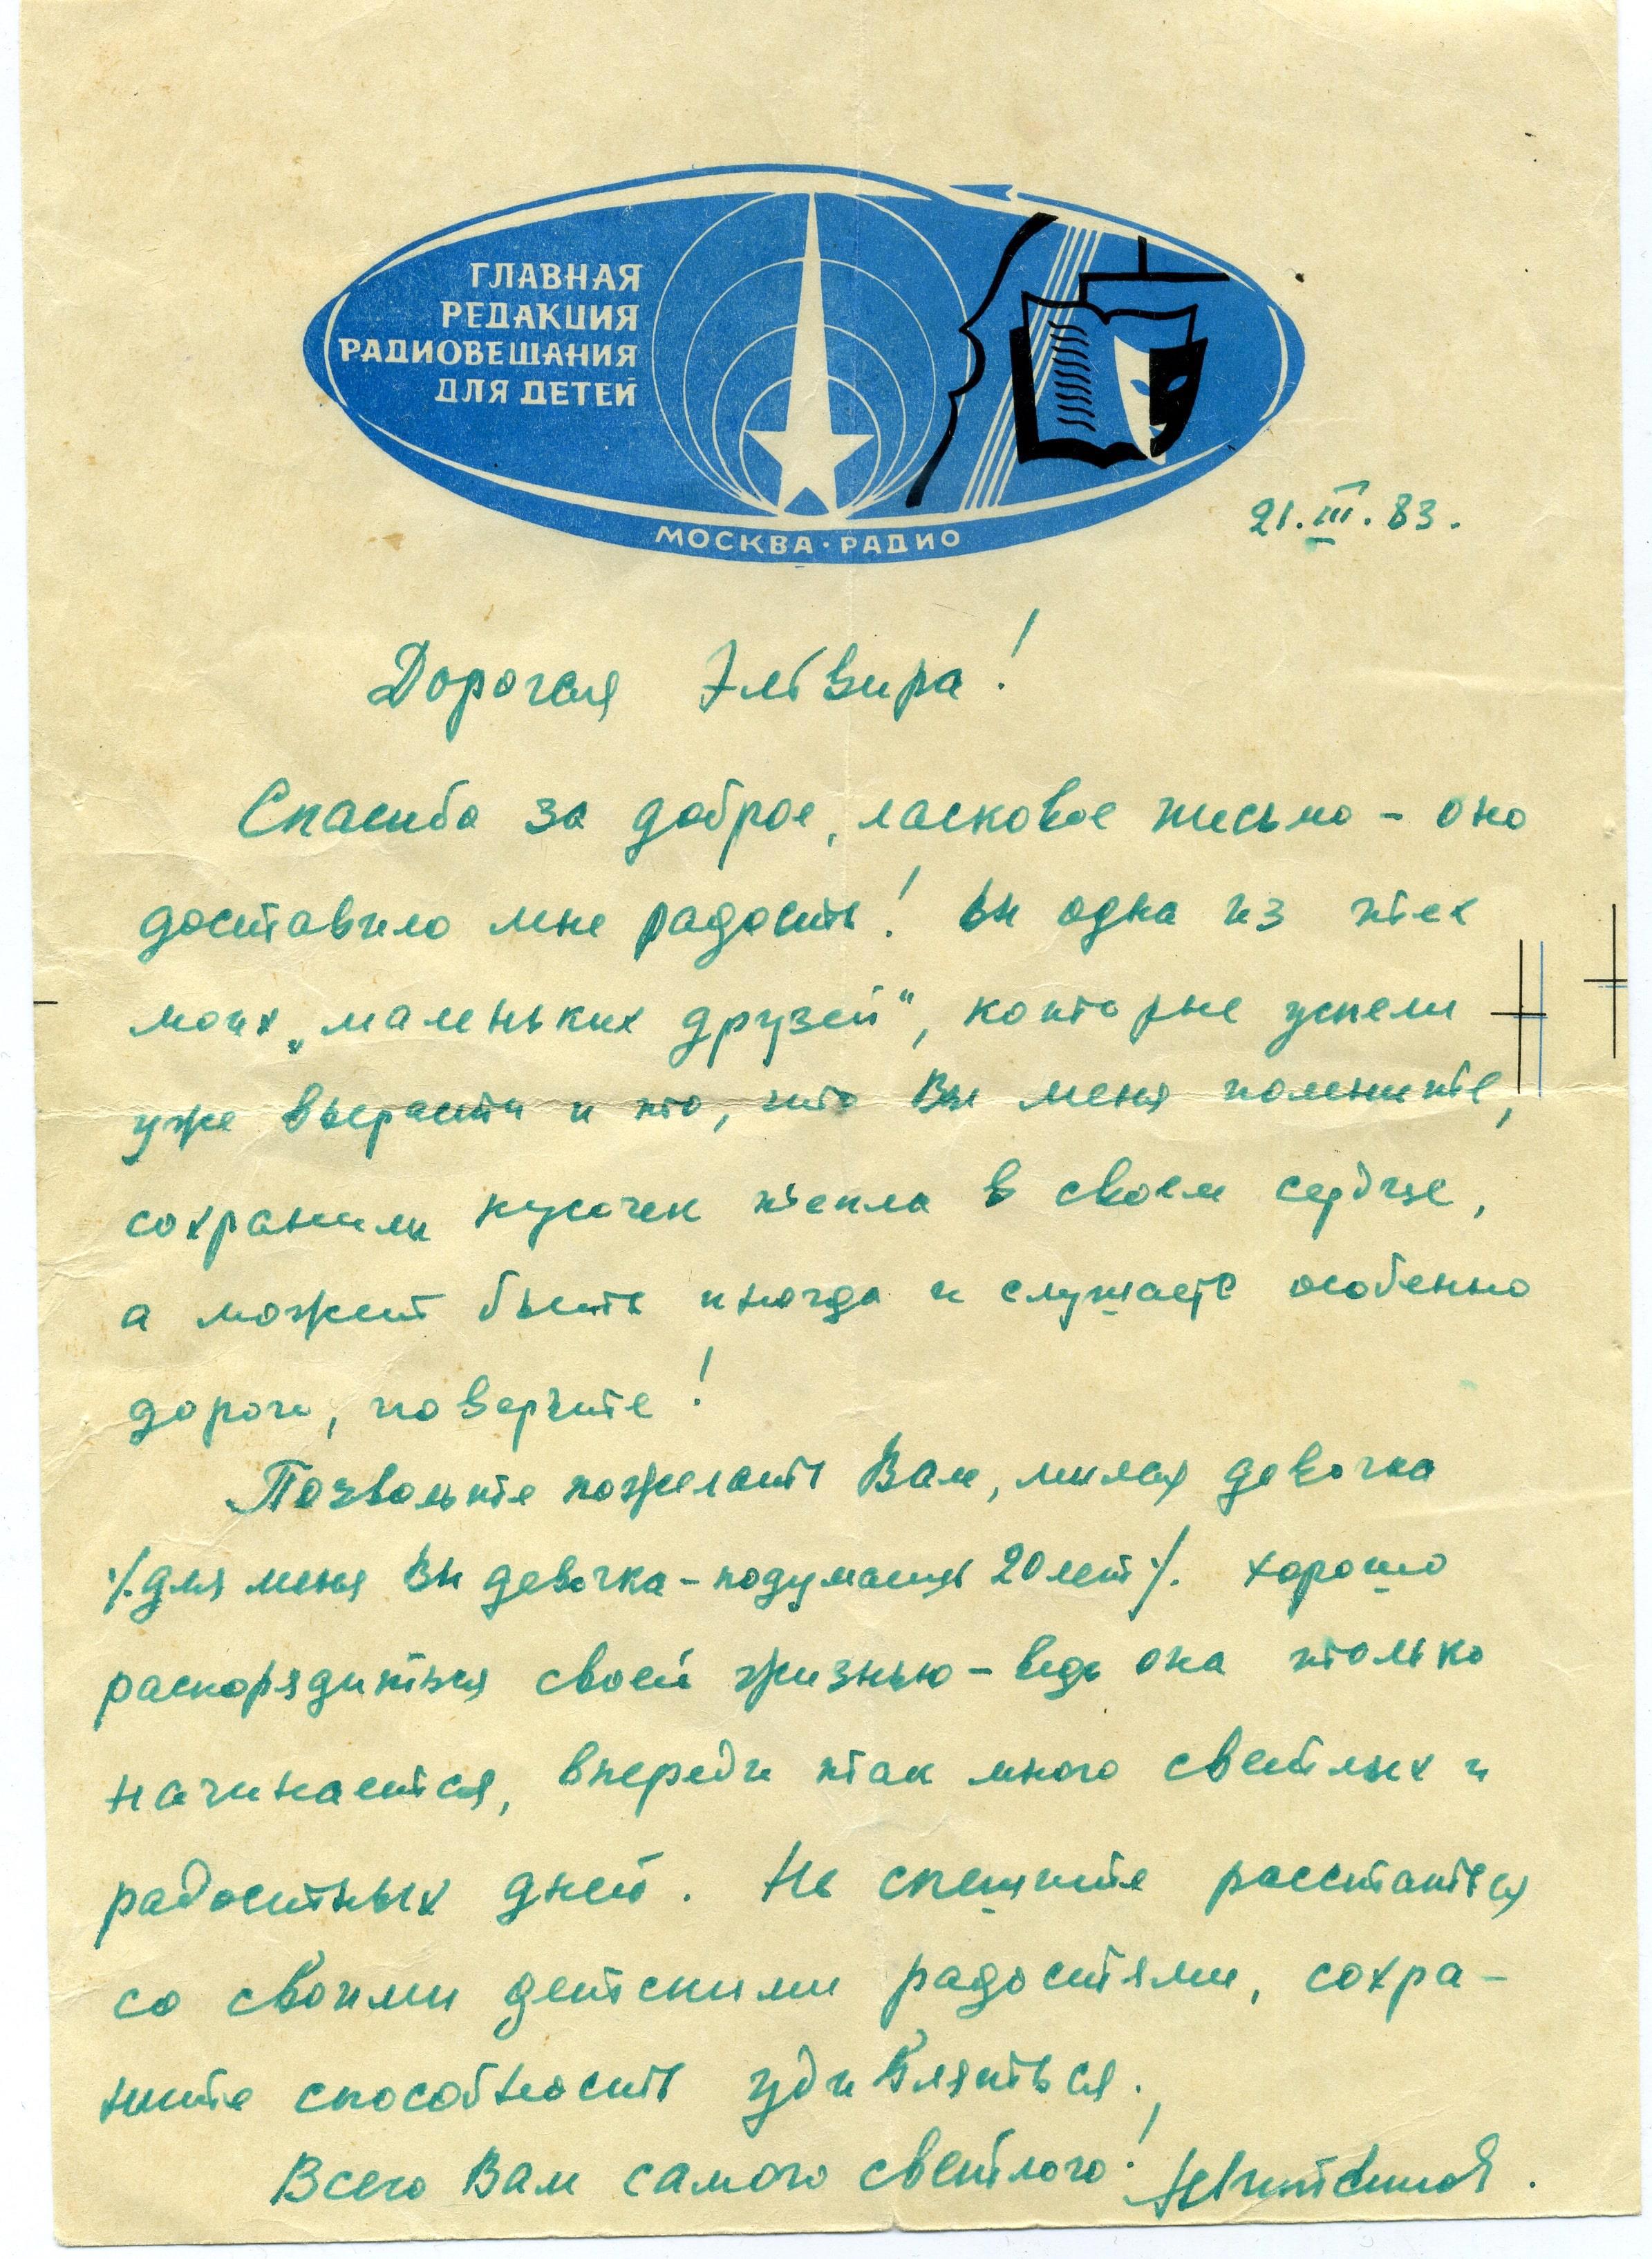 ГЛАВНАЯ
РЕДАКЦИЯ
РАДИОВЕЩАНИЯ
ДЛЯ ДЕТЕЙ
МОСКВА·РАДИО
21.III.83.
Дорогая Эльвира!
Спасибо за доброе, ласковое письмо – оно
доставило мне радость! Вы одна из тех
моих „маленьких друзей“, которые успели
уже вырасти и то, что Вы меня помните,
сохранили кусочек тепла в своем сердце,
а может быть иногда и слушаете особенно
дорого, поверьте!
Позвольте пожелать Вам, милая девочка
/для меня Вы девочка – подумаешь 20 лет/. хорошо
распорядиться своей жизнью – ведь она только
начинается, впереди так много светлых и
радостных дней. Не спешите расстаться
со своими детскими радостями, сохра-
ните способность удивляться.
Всего Вам самого светлого!